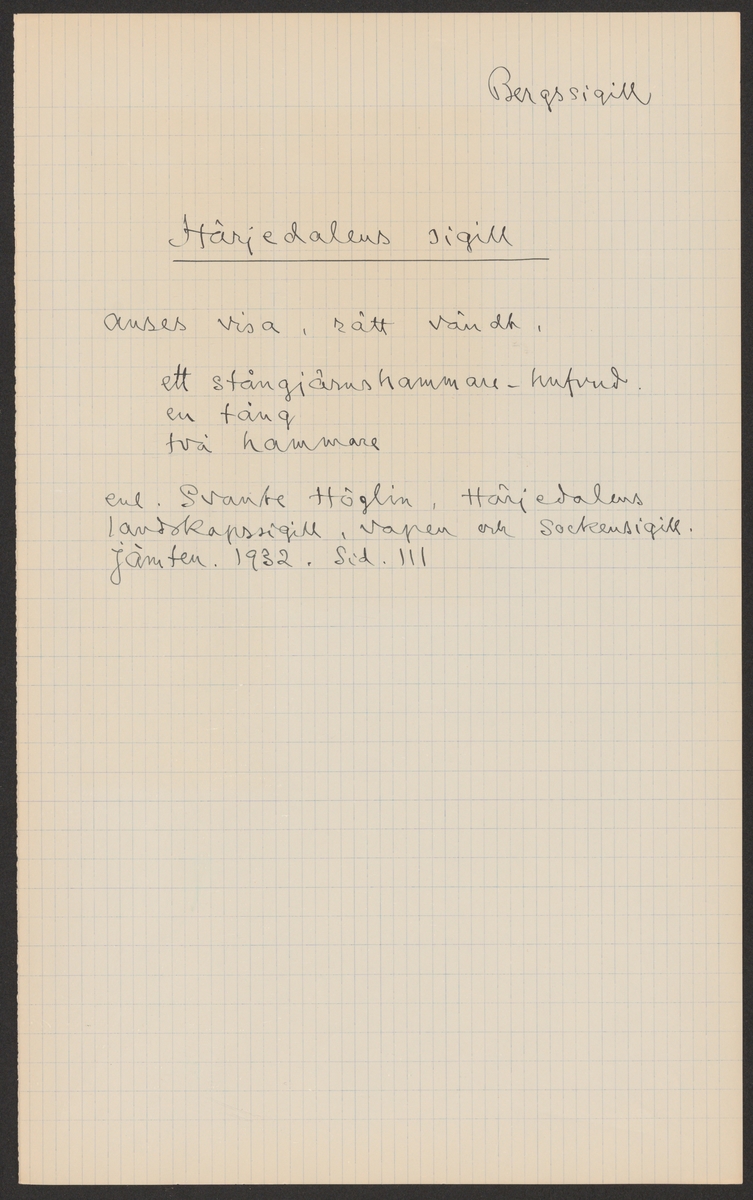 Bergssigill
Härjedalens sigill
anses visa, rätt vändt,
ett stångjärnshammare-hufvud.
en tång
två hammare
enl. Svante Höglin, Härjedalens
landskapssigill, vapen och sockensigill.
Jämten. 1932. Sid. 111